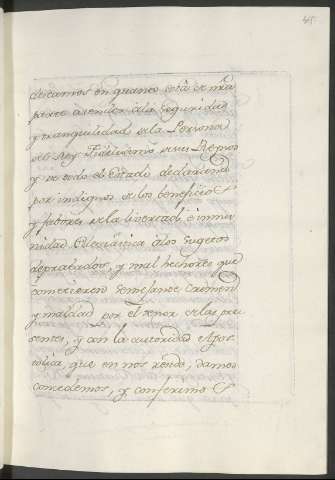 deseamos en quanto està de nrã
parte atender à la seguridad
y tranquilidad de la Persona
del Rey Fidelissimo de sus Reynos
y de todo el Estado declaramos
por indignos de los beneficios
y fabores de la libertad è inmu
nidad Eclesiastica à los sugetos
deprabados, y mal hechores que
cometieren semejante Crimen
y maldad por el tenor de las pre
sentes, y con la autoridad Apos
tolica, que en nos reside, damos
concedemos, y conferimos